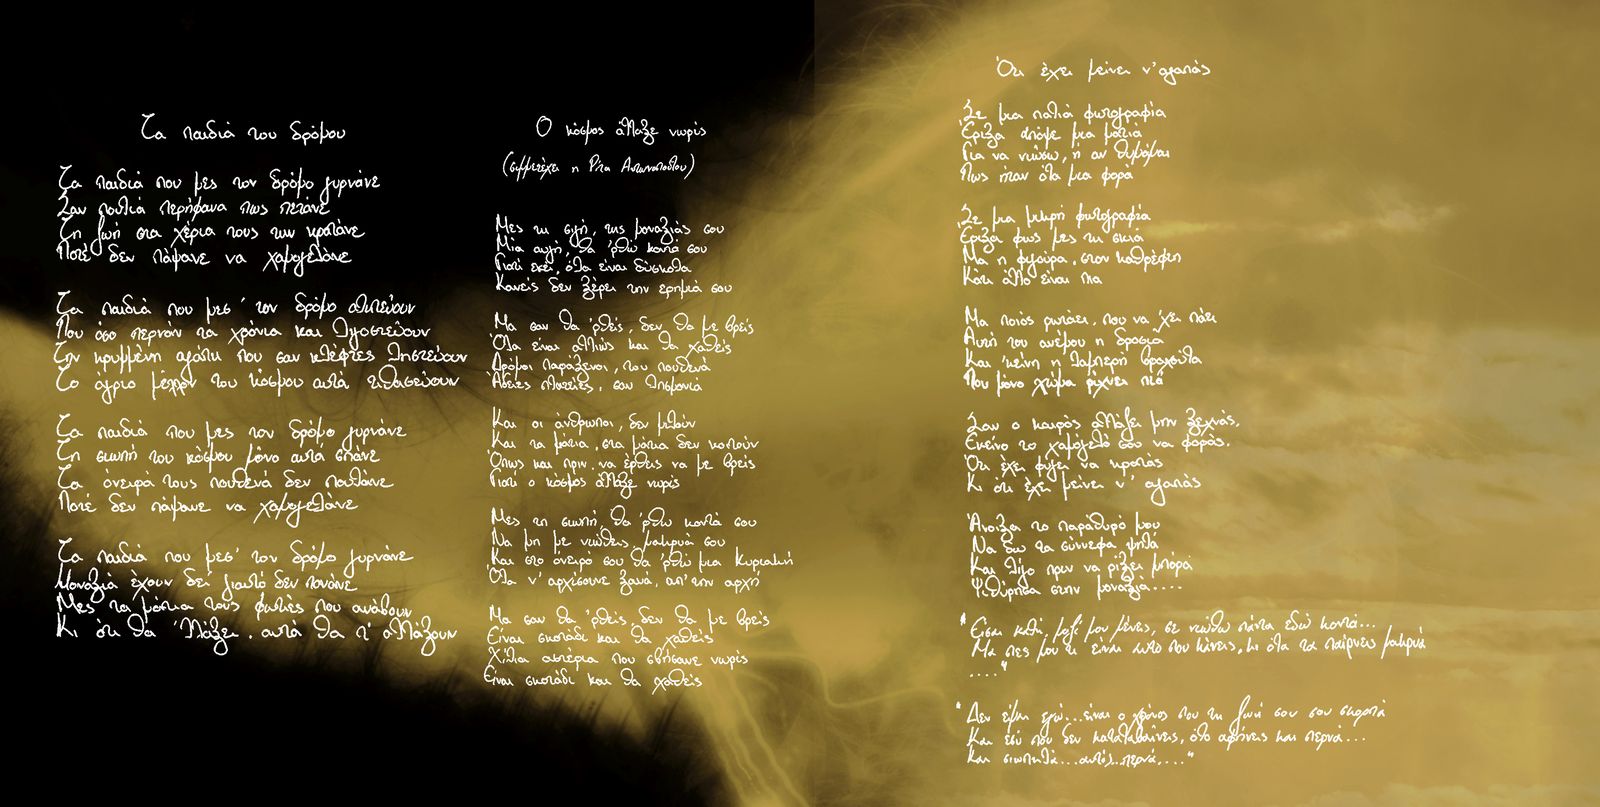 Τα παιδιά του δρόμου
Τα παιδιά που μες τον δρόμο γυρνάνε
Σαν πουλιά περήφανα πως πετάνε
Τη ζωή στα χέρια τους την κρατάνε
Ποτέ δεν πάψανε να χαμογελάνε
Τα παιδιά που μεσ' τον δρόμο αλητεύουν
Που όσο περνάν τα χρόνια και λιγοστεύουν
Την κρυμμένη αγάπη που σαν κλέφτες ληστεύουν
Το άγριο μέλλον του κόσμου αυτά τιθασεύουν
Τα παιδιά που μες τον δρόμο γυρνάνε
Τη σιωπή του κόσμου μόνο αυτά σπάνε
Τα όνειρά τους πουθενά δεν πουλάνε
Ποτέ δεν πάψανε να χαμογελάνε
Τα παιδιά που μεσ' τον δρόμο γυρνάνε
Μοναξιά έχουν δει γιαυτό δεν πονάνε
Μες τα μάτια τους φωτιές που ανάβουν
Κι ότι θα 'λλάξει, αυτά θα τ' αλλάξουν
Ο κόσμος άλλαξε νωρίς
(συμμετέχει η Ρίτα Αντωνοπούλου)
Μες τη σιγή, της μοναξιάς σου
Μία αυγή, θα 'ρθώ κοντά σου
Γιατί εκεί, όλα είναι δύσκολα
Κανείς δεν ξέρει την ερημιά σου
Μα σαν θα 'ρθείς, δεν θα με βρείς
Όλα είναι αλλιώς και θα χαθείς
Δρόμοι παράξενοι, του πουθενά
Άδειες πλατείες, σαν λησμονιά
Και οι άνθρωποι, δεν μιλούν
Και τα μάτια, στα μάτια δεν κοιτούν
Όπως και πριν, να έρθεις να με βρείς
Γιατί ο κόσμος άλλαξε νωρίς
Μες τη σιωπή, θα 'ρθω κοντά σου
Να μη με νιώθεις, μακρυά σου
Και στο όνειρό σου θα 'ρθώ μια Κυριακή
Όλα ν' αρχίσουνε ξανά, απ' την αρχή
Μα σαν θα 'ρθείς, δεν θα με βρείς
Είναι σκοτάδι και θα χαθείς
Χίλια αστέρια που σβήσανε νωρίς
Είναι σκοτάδι και θα χαθείς
Ότι έχει μείνει ν' αγαπάς
Σε μια παλιά φωτογραφία
Έριξα απόψε μια ματιά
Για να νιώσω, ή αν θυμάμαι
Πως ήταν όλα μια φορά
Σε μια μικρή φωτογραφία
Έριξα φως μες τη σκιά
Μα η φιγούρα, στον καθρέφτη
Κάτι άλλο είναι πια
Μα ποιός ρωτάει, που να 'χει πάει
Αυτή του ανέμου η δροσιά
Και 'κείνη η λαμπερή βροχούλα
Που μόνο χώμα ρίχνει πιά
Σαν ο καιρός αλλάξει μην ξεχνάς,
Εκείνο το χαμόγελό σου να φοράς.
Ότι έχει φύγει να κρατάς
Κι ότι έχει μείνει ν' αγαπάς
Άνοιξα το παράθυρό μου
Να δω τα σύννεφα ψηλά
Και λίγο πριν να ρίξει μπόρα
Ψιθύρησα στην μοναξιά....
"Είσαι καλή, μαζί μου μένεις, σε νιώθω πάντα εδώ κοντά...
Μα πες μου τι 'είναι αυτό που κάνεις, κι όλα τα παίρνεις μακρυά
...."
"Δεν είμαι εγώ...είναι ο χρόνος που τη ζωή σου σου σκορπά
Και εσύ που δεν καταλαβαίνεις, όλο αφήνεις και περνά...
Και σιωπηλά...αυτός...περνά...."